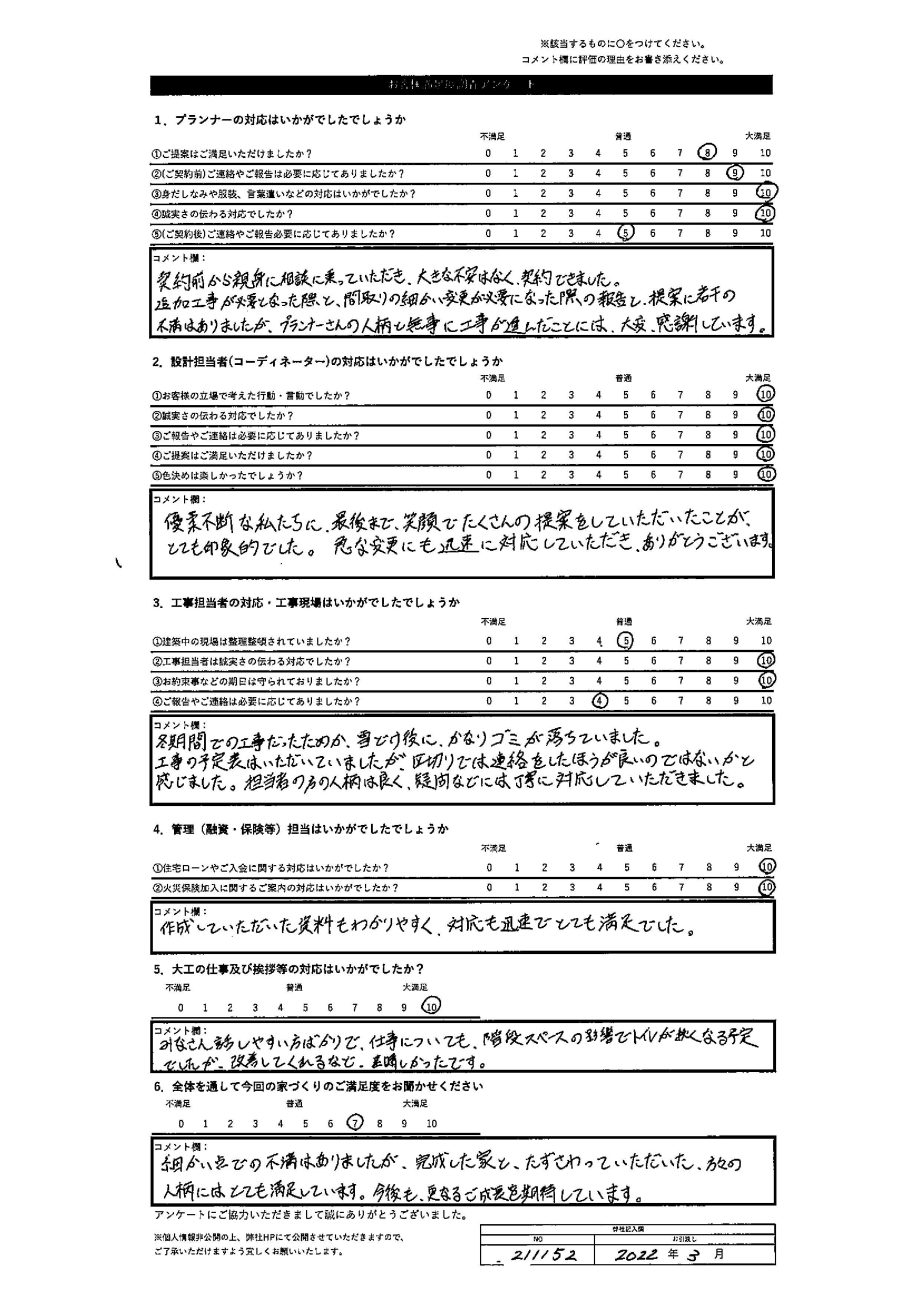 ※該当するものに〇をつけてください。
コメント欄に評価の理由をお書き添えください。
お客様満足度調査アンケート
1．プランナーの対応はいかがでしたでしょうか
不満足 普通 大満足
①ご提案はご満足いただけましたか？ 0 1 2 3 4 5 6 7 8 9 10
②(ご契約前)ご連絡やご報告は必要に応じてありましたか？ 0 1 2 3 4 5 6 7 8 9 10
③身だしなみや服装、言葉遣いなどの対応はいかがでしたか？ 0 1 2 3 4 5 6 7 8 9 10
④誠実さの伝わる対応でしたか？ 0 1 2 3 4 5 6 7 8 9 10
⑤(ご契約後)ご連絡やご報告必要に応じてありましたか？ 0 1 2 3 4 5 6 7 8 9 10
コメント欄：
契約前から親身に相談に乗っていただき、大きな不安はなく、契約できました。
追加工事が必要となった際と、間取りの細かい変更が必要になった際の報告と、提案に若干の
不満はありましたが、プランナーさんの人柄と無事に工事が進んだことには、大変、感謝しています。
2．設計担当者(コーディネーター)の対応はいかがでしたでしょうか
不満足 普通 大満足
①お客様の立場で考えた行動・言動でしたか？ 0 1 2 3 4 5 6 7 8 9 10
②誠実さの伝わる対応でしたか？ 0 1 2 3 4 5 6 7 8 9 10
③ご報告やご連絡は必要に応じてありましたか？ 0 1 2 3 4 5 6 7 8 9 10
④ご提案はご満足いただけましたか？ 0 1 2 3 4 5 6 7 8 9 10
⑤色決めは楽しかったでしょうか？ 0 1 2 3 4 5 6 7 8 9 10
コメント欄：
優柔不断な私たちに、最後まで、笑顔でたくさんの提案をしていただいたことが、
とても印象的でした。急な変更にも迅速に対応していただき、ありがとうございます。
3．工事担当者の対応・工事現場はいかがでしたでしょうか
不満足 普通 大満足
①建築中の現場は整理整頓されていましたか？ 0 1 2 3 4 5 6 7 8 9 10
②工事担当者は誠実さの伝わる対応でしたか？ 0 1 2 3 4 5 6 7 8 9 10
③お約束事などの期日は守られておりましたか？ 0 1 2 3 4 5 6 7 8 9 10
④ご報告やご連絡は必要に応じてありましたか？ 0 1 2 3 4 5 6 7 8 9 10
コメント欄：
冬期間での工事だったためか、雪どけ後に、かなりゴミが落ちていました。
工事の予定表はいただいていましたが、区切りでは連絡をしたほうが良いのではないかと
感じました。担当者の方の人柄は良く、疑問などには丁寧に対応していただきました。
4．管理（融資・保険等）担当はいかがでしたでしょうか
不満足 普通 大満足
①住宅ローンやご入会に関する対応はいかがでしたか？ 0 1 2 3 4 5 6 7 8 9 10
②火災保険加入に関するご案内の対応はいかがでしたか？ 0 1 2 3 4 5 6 7 8 9 10
コメント欄：
作成していただいた資料もわかりやすく、対応も迅速でとても満足でした。
5．大工の仕事及び挨拶等の対応はいかがでしたか？
不満足 普通 大満足
0 1 2 3 4 5 6 7 8 9 10
コメント欄：
みなさん話しやすい方ばかりで、仕事についても、階段スペースの影響でトイレが狭くなる予定
でしたが、改善してくれるなど、素晴しかったです。
6．全体を通して今回の家づくりのご満足度をお聞かせください
不満足 普通 大満足
0 1 2 3 4 5 6 7 8 9 10
コメント欄：
細かい点での不満はありましたが、完成した家と、たずさわっていただいた、方々の
人柄にはとても満足しています。今後も、更なるご成長を期待しています。
アンケートにご協力いただきまして誠にありがとうございました。
※個人情報非公開の上、弊社HPにて公開させていただきますので、
ご了承いただけますよう宜しくお願いいたします。
弊社記入欄
NO お引渡し
211152 2022 年 3 月